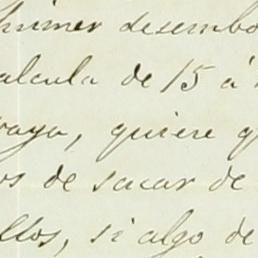 primer desembo
alcula de 15 á
vaya, quiere q
os de sacar de
llos, si algo de